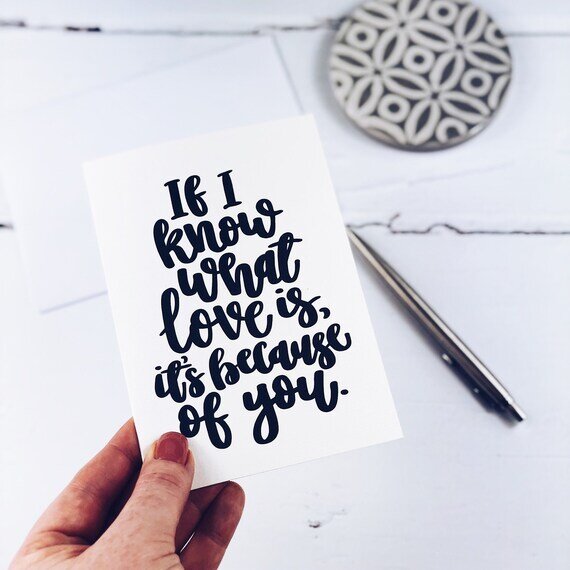 If I
know
what
love is,
it's because
of you.